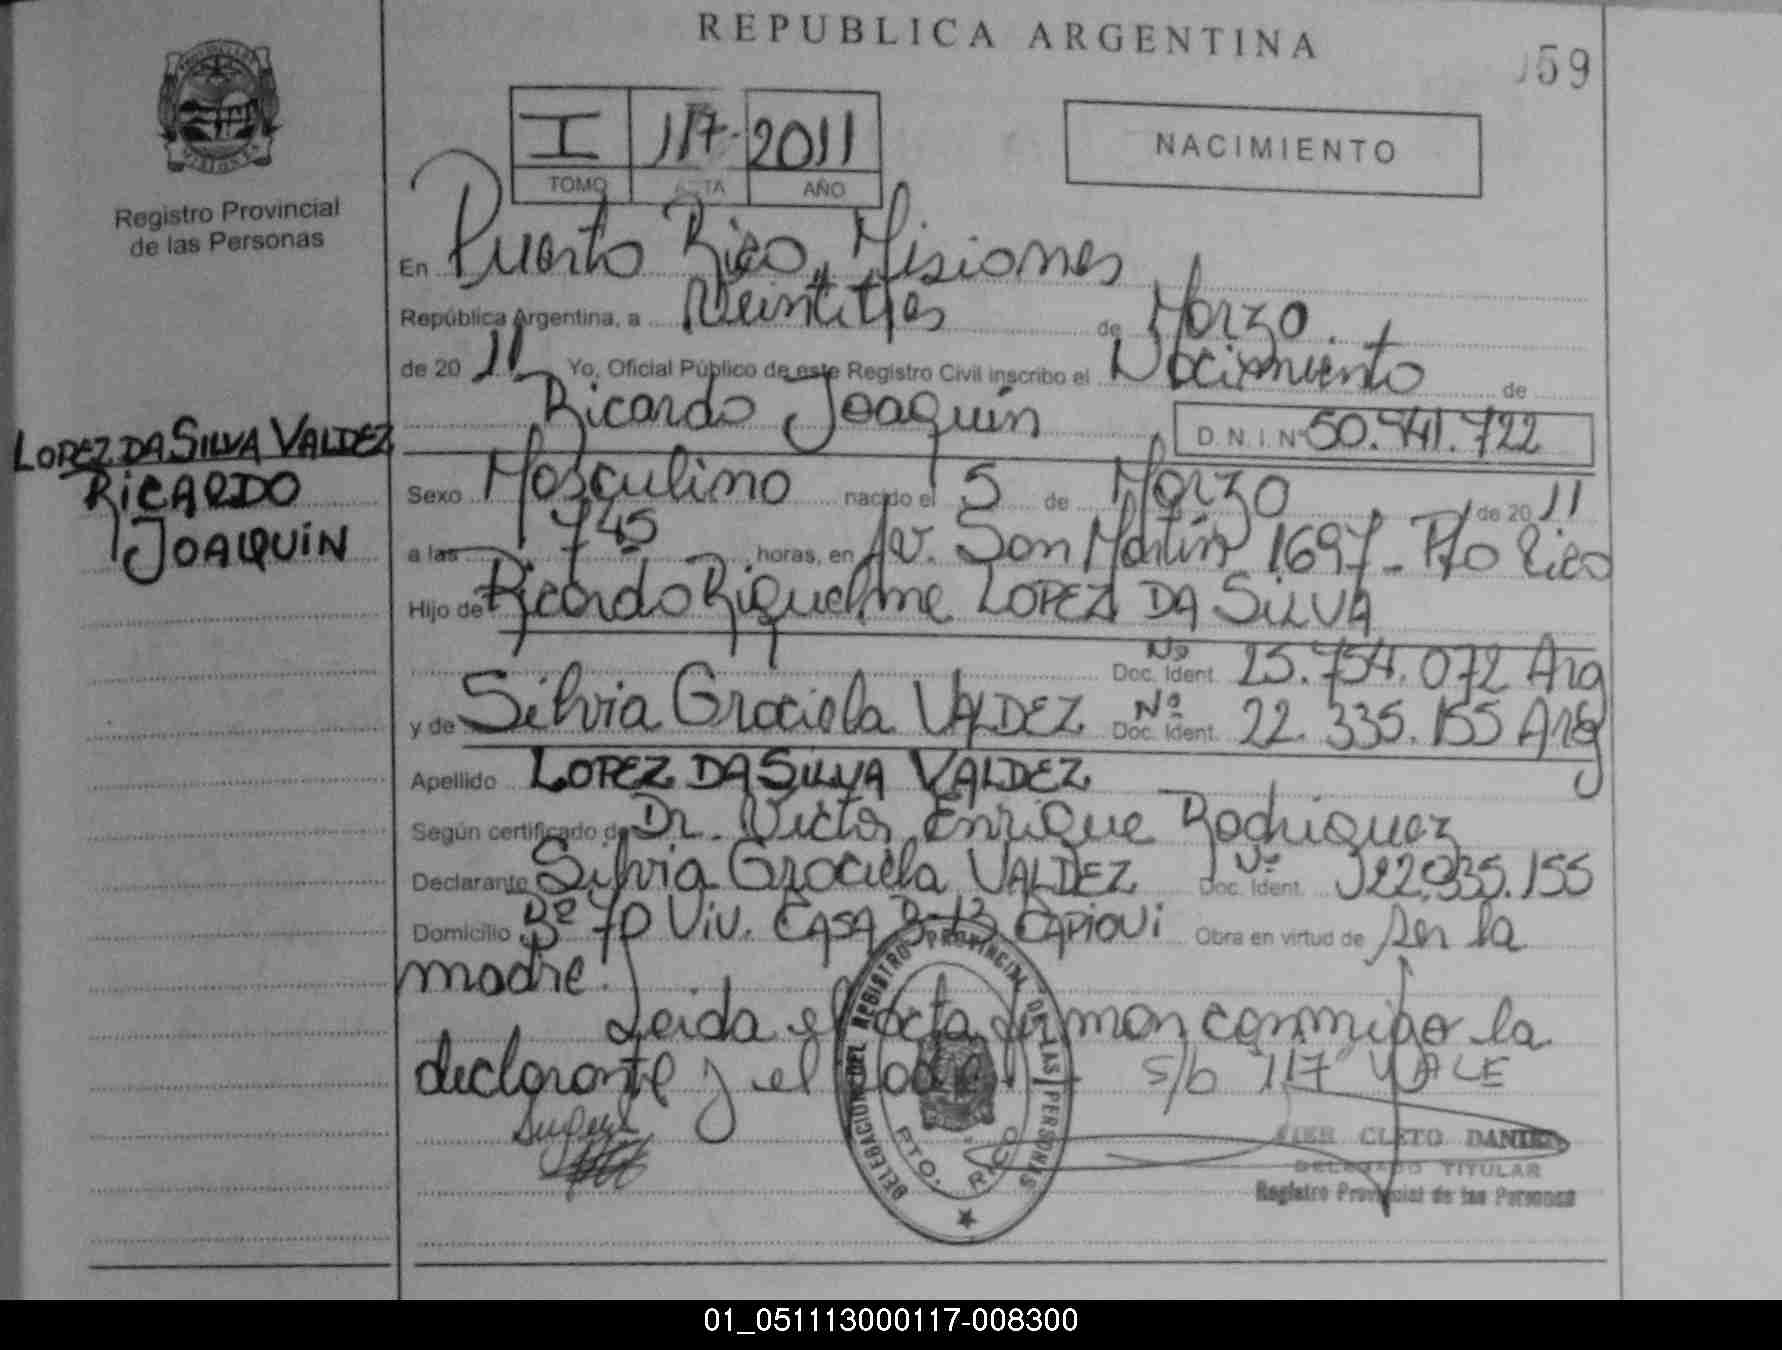 REPUBLICA ARGENTINA
59
I 117- 2011
TOMO ACTA AÑO
NACIMIENTO
Registro Provincial
de las Personas
En Puerto Rico, Misiones
República Argentina, a Veintitres de Marzo
de 20 11 Yo, Oficial Público de este Registro Civil inscribo el Nacimiento de
Ricardo Joaquín D.N.I. Nº 50.941.722
LOPEZ DA SILVA VALDEZ
RICARDO
JOAQUIN
Sexo Masculino nacido el 5 de Marzo de 20 11
a las 745 horas, en Av. San Martín 1697 - Pto Rico
Hijo de Ricardo Riquelme LOPEZ DA SILVA
Nº Doc. Ident. 25.754.072 Arg
y de Silvia Graciela VALDEZ Nº Doc. Ident. 22.335.155 Arg
Apellido LOPEZ DA SILVA VALDEZ
Según certificado de Dr. Victor Enrique Rodriguez
Declarante Silvia Graciela VALDEZ Nº Doc. Ident. 22.335.155
Domicilio Bº 70 Viv. CASA B-13 CAPIOVI Obra en virtud de ser la
madre.
Leida el acta firman conmigo la
declarante y el padre S/b 117 VALE
DELEGACION DEL REGISTRO PROVINCIAL DE LAS PERSONAS
PTO. RICO
CLETO DANIEL
DELEGADO TITULAR
Registro Provincial de las Personas
01_051113000117-008300